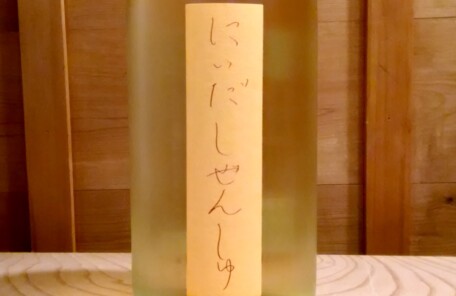 にいだしぜんしゅ